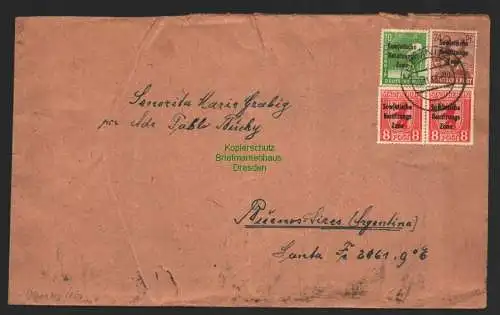 10
Sowjetische
Besatzungs
Zone
24
Sowjetische
Besatzungs
Zone
Sowjetische
Besatzungs
Zone
8 8
Sowjetische
Besatzungs
Zone
8 8
Senorita Maria
por Adr Pablo
Kopierschutz
Briefmarkenhaus
Dresden
Buenos-Aires (Argentina)
Santa Fe 2061. 9º E